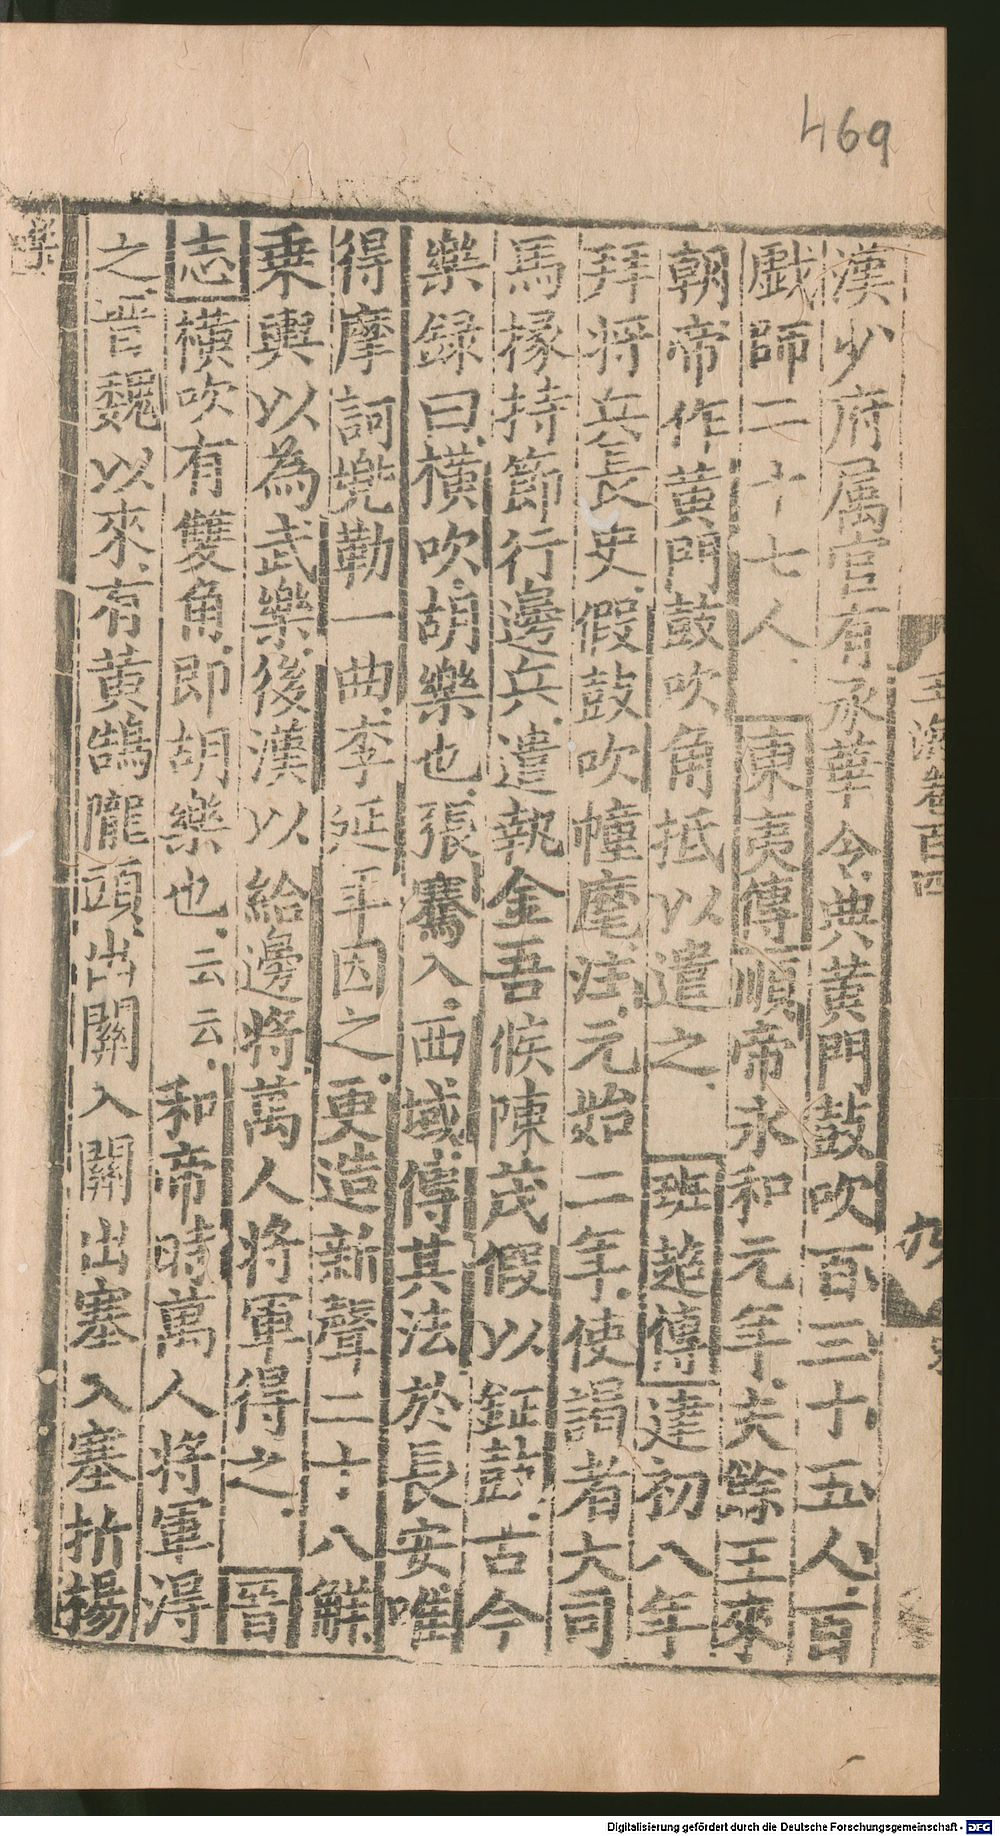 469
玉海卷百四
漢少府属官有承華令典黄門鼓吹百三十五人百
戯師二十七人東夷傳順帝永和元年夫餘王來
朝帝作黄門鼓吹角抵以遣之班超傳建初八年
拜将兵長史假鼓吹幢麾注元始二年使謁者大司
馬掾持節行邊兵遣執金吾候陳茂假以鉦鼓古今
樂録曰横吹胡樂也張騫入西域傳其法於長安唯
得摩訶兠勒一曲李延年因之更造新聲二十八解
乗輿以為武樂後漢以給邊将萬人将軍得之晋
志横吹有雙角即胡樂也云云和帝時萬人将軍得
之晋魏以來有黄鵠隴頭出關入關出塞入塞折楊
Digitalisierung gefördert durch die Deutsche Forschungsgemeinschaft - DFG